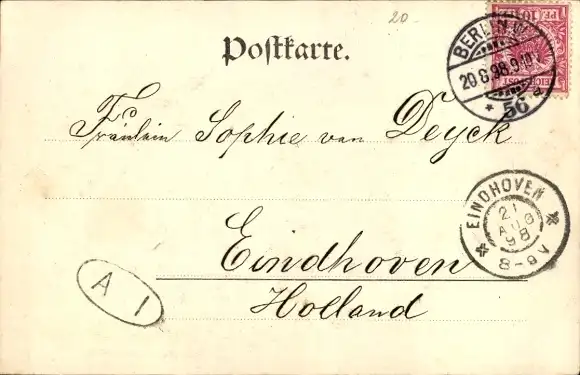 20
Postkarte.
BERLIN W.
20.8.98.9-10
* 56
REICHSPOST
Fräulein Sophie van Deyck
EINDHOVEN
21
AUG
98
8-9V
Eindhoven
Holland
A 1